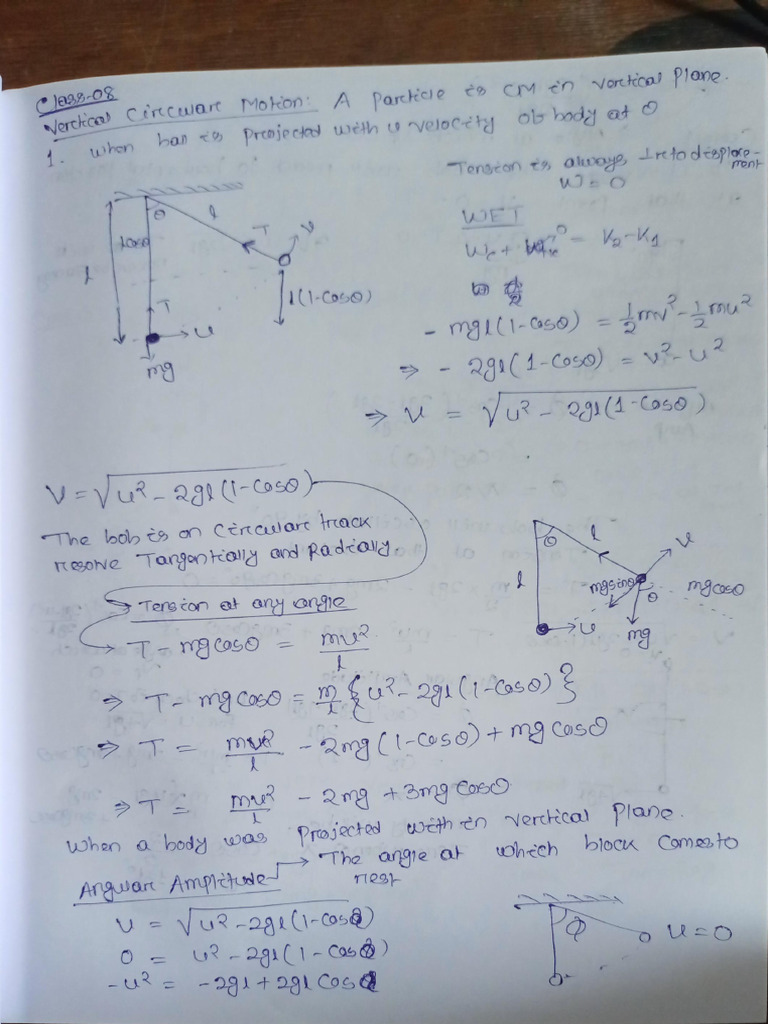 Class-08
Vertical Circular Motion: A Particle is CM in vertical Plane.
1. When bar is Projected with u velocity ob body at O
Tension is always lre to displacement
W = 0
WET
= K₂ - K₁
θ
l
T
v
lcosθ
l
l(1-cosθ)
T
u
mg
- mgl(1-cosθ) = 1/2 mv² - 1/2 mu²
⇒ - 2gl(1-cosθ) = v² - u²
⇒ v = √(u² - 2gl(1-cosθ))
v = √(u² - 2gl(1-cosθ))
The bob is on circular track
resolve Tangentially and Radially
θ
l
v
l
mgsinθ
θ
mgcosθ
u
mg
Tension at any angle
T - mgcosθ = mv²/l
⇒ T - mgcosθ = m/l {u² - 2gl(1-cosθ)}
⇒ T = mu²/l - 2mg(1-cosθ) + mgcosθ
⇒ T = mu²/l - 2mg + 3mgcosθ
When a body was Projected with in vertical Plane.
Angular Amplitude → The angle at which block comes to
rest
v = √(u² - 2gl(1-cosϕ))
0 = u² - 2gl(1-cosϕ)
-u² = -2gl + 2gl cosϕ
ϕ
u = 0